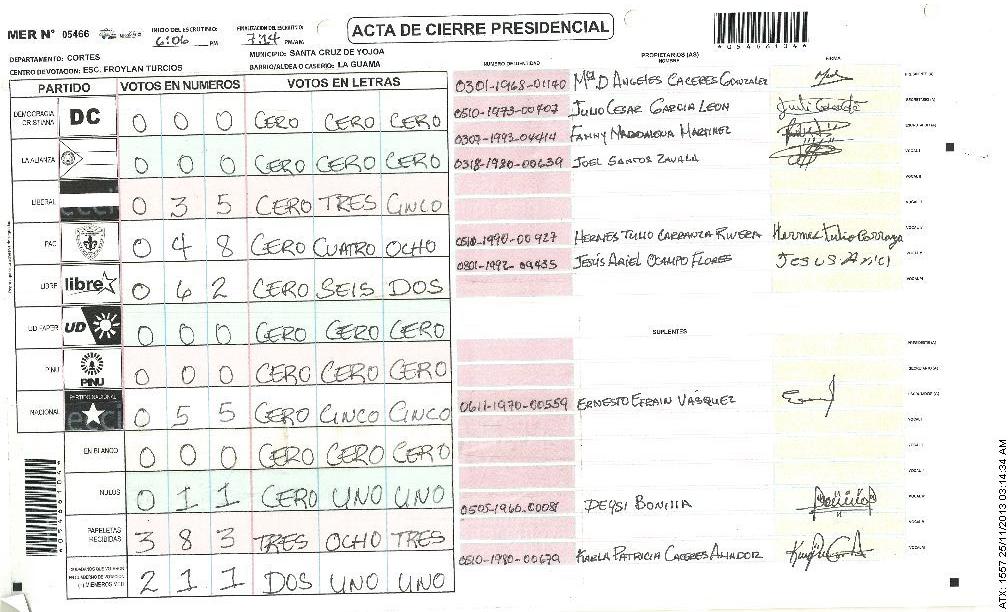 MER N° 05466
INICIO DEL ESCRUTINIO: 6:06 PM
FINALIZACION DEL ESCRUTINIO: 7:14 PM/AM
ACTA DE CIERRE PRESIDENCIAL
DEPARTAMENTO: CORTES
MUNICIPIO: SANTA CRUZ DE YOJOA
CENTRO DE VOTACION: ESC. FROYLAN TURCIOS
BARRIO/ALDEA O CASERIO: LA GUAMA
PARTIDO VOTOS EN NUMEROS VOTOS EN LETRAS
DEMOCRACIA CRISTIANA DC 0 0 0 CERO CERO CERO
LA ALIANZA 0 0 0 CERO CERO CERO
LIBERAL 0 3 5 CERO TRES CINCO
PAC 0 4 8 CERO CUATRO OCHO
LIBRE libre 0 6 2 CERO SEIS DOS
UD FAPER UD 0 0 0 CERO CERO CERO
PINU PINU 0 0 0 CERO CERO CERO
NACIONAL PARTIDO NACIONAL 0 5 5 CERO CINCO CINCO
EN BLANCO 0 0 0 CERO CERO CERO
NULOS 0 1 1 CERO UNO UNO
PAPELETAS RECIBIDAS 3 8 3 TRES OCHO TRES
2 1 1 DOS UNO UNO
PROPIETARIOS (AS)
NUMERO DE IDENTIDAD NOMBRE FIRMA
0301-1968-01140 Mª D ANGELES CACERES GONZALEZ
0510-1973-00407 JULIO CESAR GARCIA LEON
0307-1993-04414 FANNY MARTINEZ
0318-1980-00639 JOEL SANTOS ZAVALA
0510-1990-00927 HERMES TULIO CARRANZA RIVERA Hermes Tulio Carranza
0801-1992-09435 JESÚS ARIEL OCAMPO FLORES JESUS Ariel
SUPLENTES
0611-1970-00559 ERNESTO EFRAIN VÁSQUEZ
0505-1960-00081 DEYSI BONILLA
0510-1980-00679 KARLA PATRICIA CACERES AMADOR
ATX: 1557 25/11/2013 03:14:34 AM